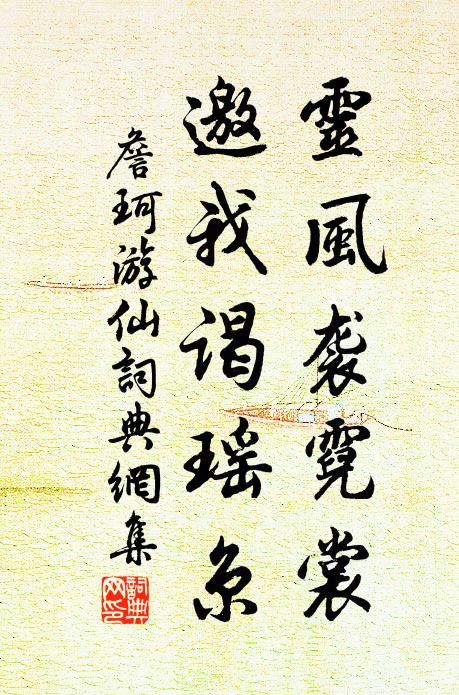 靈風袭霓裳
邀我谒瑶京
詹珂游仙詞典網集
詞典